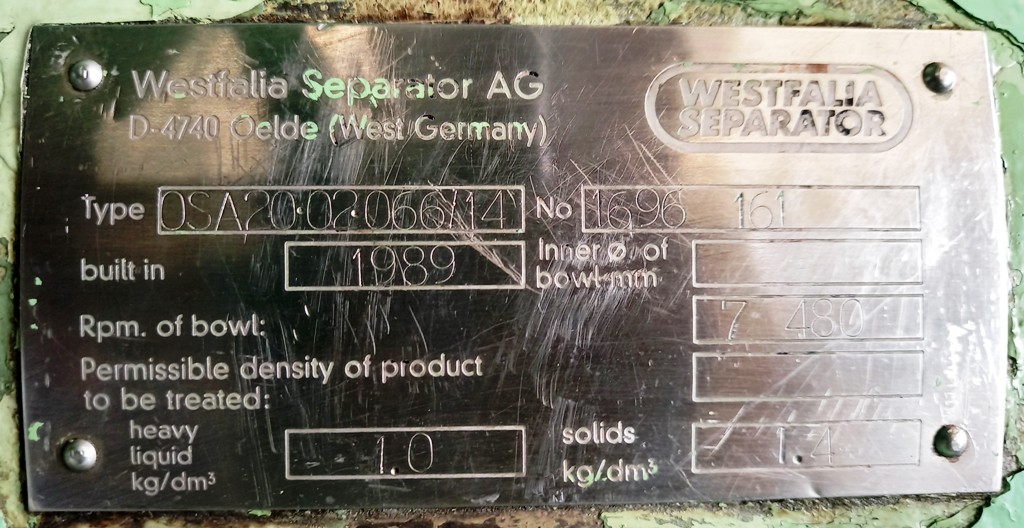 Westfalia Separator AG
D-4740 Oelde (West Germany)
WESTFALIA
SEPARATOR
Type OSA20·02·066/14 No 1696 161
built in 1989 Inner ø of
bowl mm
Rpm. of bowl: 7 480
Permissible density of product
to be treated:
heavy
liquid
kg/dm³ 1.0 solids
kg/dm³ 1.4